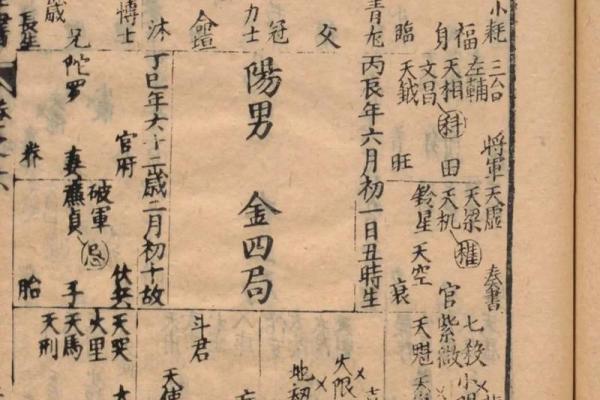 小耗
青龙
力士
博士
歲
長生
福
身
臨
父
冠
命
沐
兄
三台
左輔
天相
文昌
天鉞
科
將軍
田
旺
丙辰年六月初一日丑時生
陽男 金四局
丁巳年六十二歲二月初十故
官府
陀罗
妻
養
天虛
天梁
天机
鈴星
天空
權
奏書
官
衰
破軍
廉貞
忌
伏兵
子
胎
七殺
紫微
天魁
小限
大限
地刼
斗君
天使
天哭
火星
天馬
天刑